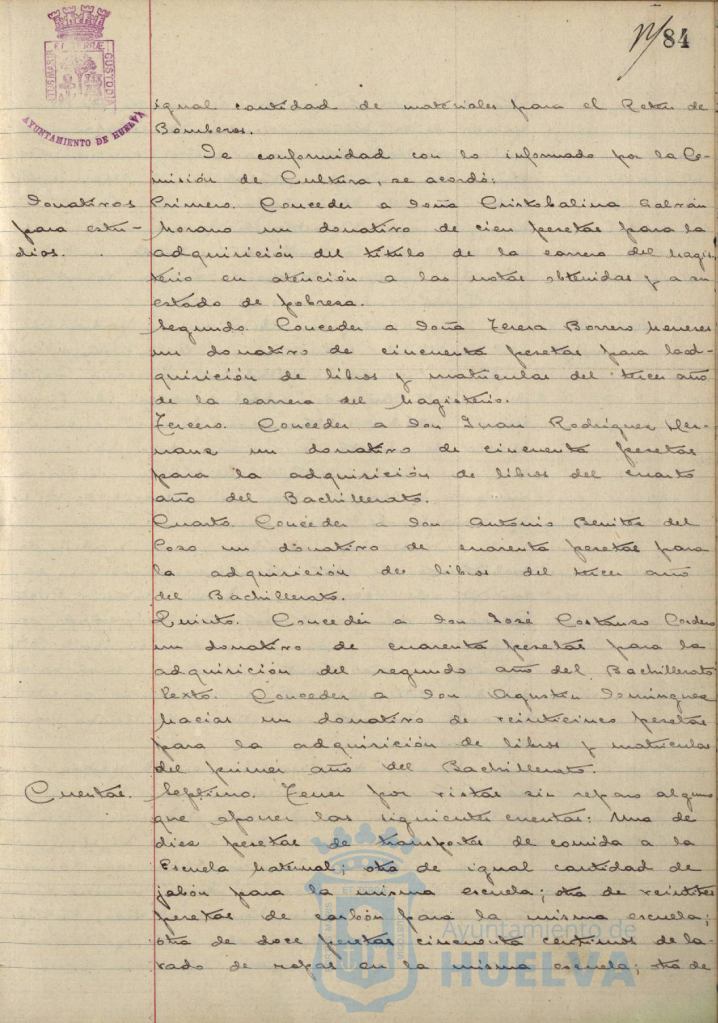 84
AYUNTAMIENTO DE HUELVA
igual cantidad de materiales para el Reten de
Bomberos.
De conformidad con lo informado por la Co-
misión de Cultura, se acordó:
Donativos
para estu-
dios.
Primero. Conceder a Doña Cristobalina Galván
Morano un donativo de cien pesetas para la
adquisición del título de la carrera del Magis-
terio en atención a las notas obtenidas y a su
estado de pobresa.
Segundo. Conceder a Doña Teresa Borrero
un donativo de cincuenta pesetas para la ad-
quisición de libros y matriculas del tercer año
de la carrera del Magisterio.
Tercero. Conceder a Don Juan Rodríguez
un donativo de cincuenta pesetas
para la adquisición de libros del cuarto
año del Bachillerato.
Cuarto. Conceder a Don Antonio Benites del
Pozo un donativo de cuarenta pesetas para
la adquisición de libros del tercer año
del Bachillerato.
Quinto. Conceder a Don José Costanzo Cordero
un donativo de cuarenta pesetas para la
adquisición del segundo año del Bachillerato
Sexto. Conceder a Don Agustín Dominguez
Macias un donativo de veinticinco pesetas
para la adquisición de libros y matriculas
del primer año del Bachillerato.
Cuentas.
Septimo. Tener por vistas sin reparo alguno
que oponer las siguientes cuentas: Una de
dies pesetas de transportes de comida a la
Escuela Maternal; otra de igual cantidad de
jabón para la misma escuela; otra de veintitres
pesetas de carbón para la misma escuela;
otra de doce pesetas cincuenta centimos de la-
vado de ropas en la misma escuela; otra de
Ayuntamiento de
HUELVA